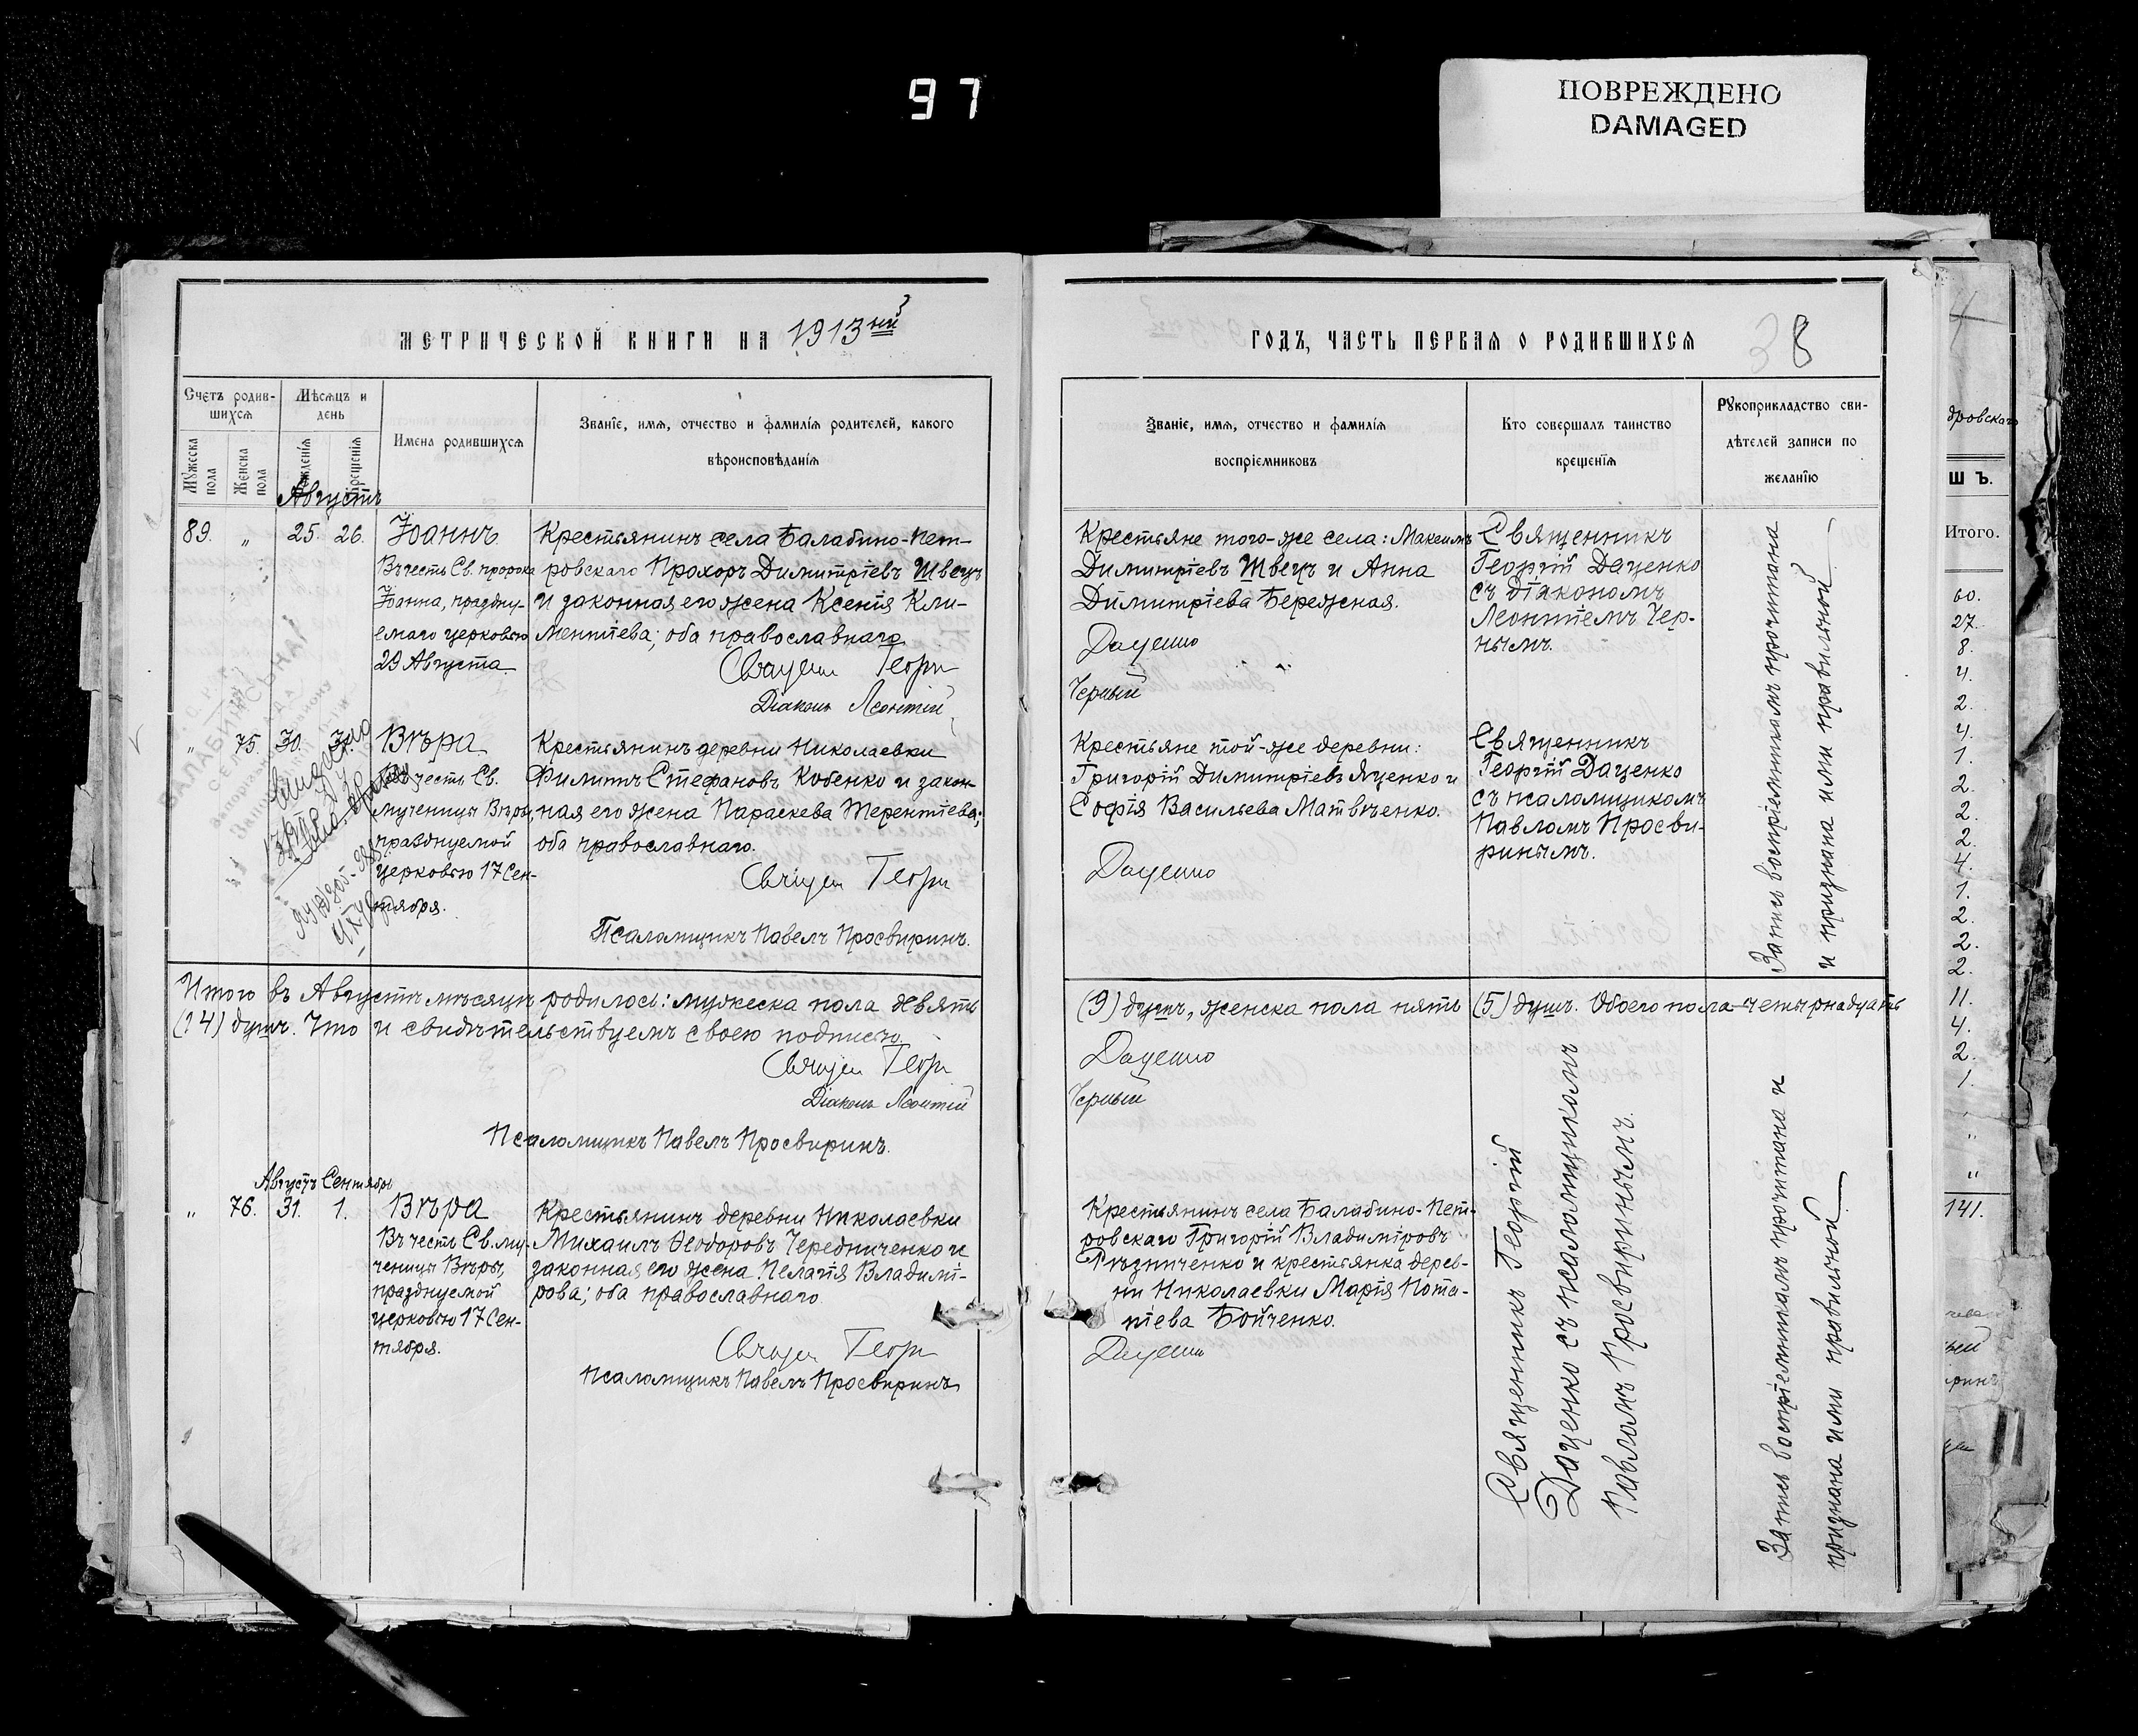 97
ПОВРЕЖДЕНО
DAMAGED
МЕТРИЧЕСКОЙ КНИГИ НА 1913ий
Счетъ родив-
шихся
Мѣсяцъ и
день
Мужеска
пола
Женска
пола
Рожденія
Крещенія
Имена родившихся
Званіе, имя, отчество и фамилія родителей, какого
вѣроисповѣданія
Августъ
89. „ 25. 26. Іоаннъ
Въ честь Св. пророка
Іоанна, праздну-
емаго церковью
29 Августа.
Крестьянинъ села Балабино-Пет-
ровскаго Прохоръ Димитріевъ Швецъ
и законная его жена Ксенія Кли-
ментіева; оба православнаго
Священ Георгі
Діаконъ Леонтій
„ 75. 30. Вѣра
Въ честь Св.
мученицы Вѣры,
празднуемой
церковью 17 Сен-
тября.
Крестьянинъ деревни Николаевки
Филиппъ Стефановъ Кобенко и закон-
ная его жена Параскева Терентіева;
оба православнаго.
Священ Георгі
Псаломщикъ Павелъ Просвиринъ.
Итого въ Августѣ мѣсяцѣ родилось: мужеска пола девять
(14) душъ. Что и свидѣтельствуемъ своею подписью.
Священ Георгі
Діаконъ Леонтій
Псаломщикъ Павелъ Просвиринъ.
Августъ Сентябрь
„ 76. 31. 1. Вѣра
Въ честь Св. му-
ченицы Вѣры,
празднуемой
церковью 17 Сен-
тября.
Крестьянинъ деревни Николаевки
Михаилъ Ѳеодоровъ Чередниченко и
законная его жена Пелагія Владимі-
рова; оба православнаго
Священ Георгі
Псаломщикъ Павелъ Просвиринъ
ГОДЪ, ЧАСТЬ ПЕРВАЯ О РОДИВШИХСЯ
38
Званіе, имя, отчество и фамилія
воспріемниковъ
Кто совершалъ таинство
крещенія
Рукоприкладство сви-
дѣтелей записи по
желанію
Крестьяне того-же села: Максимъ
Димитріевъ Швецъ и Анна
Димитріева Бережная.
Даценко
Черный
Священникъ
Георгій Даценко
съ діакономъ
Леонтіемъ Чер-
нымъ.
Крестьяне той-же деревни:
Григорій Димитріевъ Яценко и
Софія Васильева Матвѣенко.
Даценко
Священникъ
Георгій Даценко
съ псаломщикомъ
Павломъ Просви-
ринымъ.
Запись воспріемникамъ прочитана
и признана ими правильной
(9) душъ, женска пола пять (5) душъ. Обоего пола четырнадцать
Даценко
Черный
Крестьянинъ села Балабино-Пет-
ровскаго Григорій Владиміровъ
Рѣзниченко и крестьянка дерев-
ни Николаевки Марія Пота-
піева Бойченко.
Даценко
Священникъ Георгій
Даценко съ псаломщикомъ
Павломъ Просвиринымъ.
Запись воспріемникамъ прочитана и
признана ими правильной
дровскаго
Ш Ъ.
Итого.
60.
27.
8.
4.
2.
4.
1.
2.
2.
2.
4.
1.
2.
2.
2.
11.
4.
2.
1.
„
„
141.